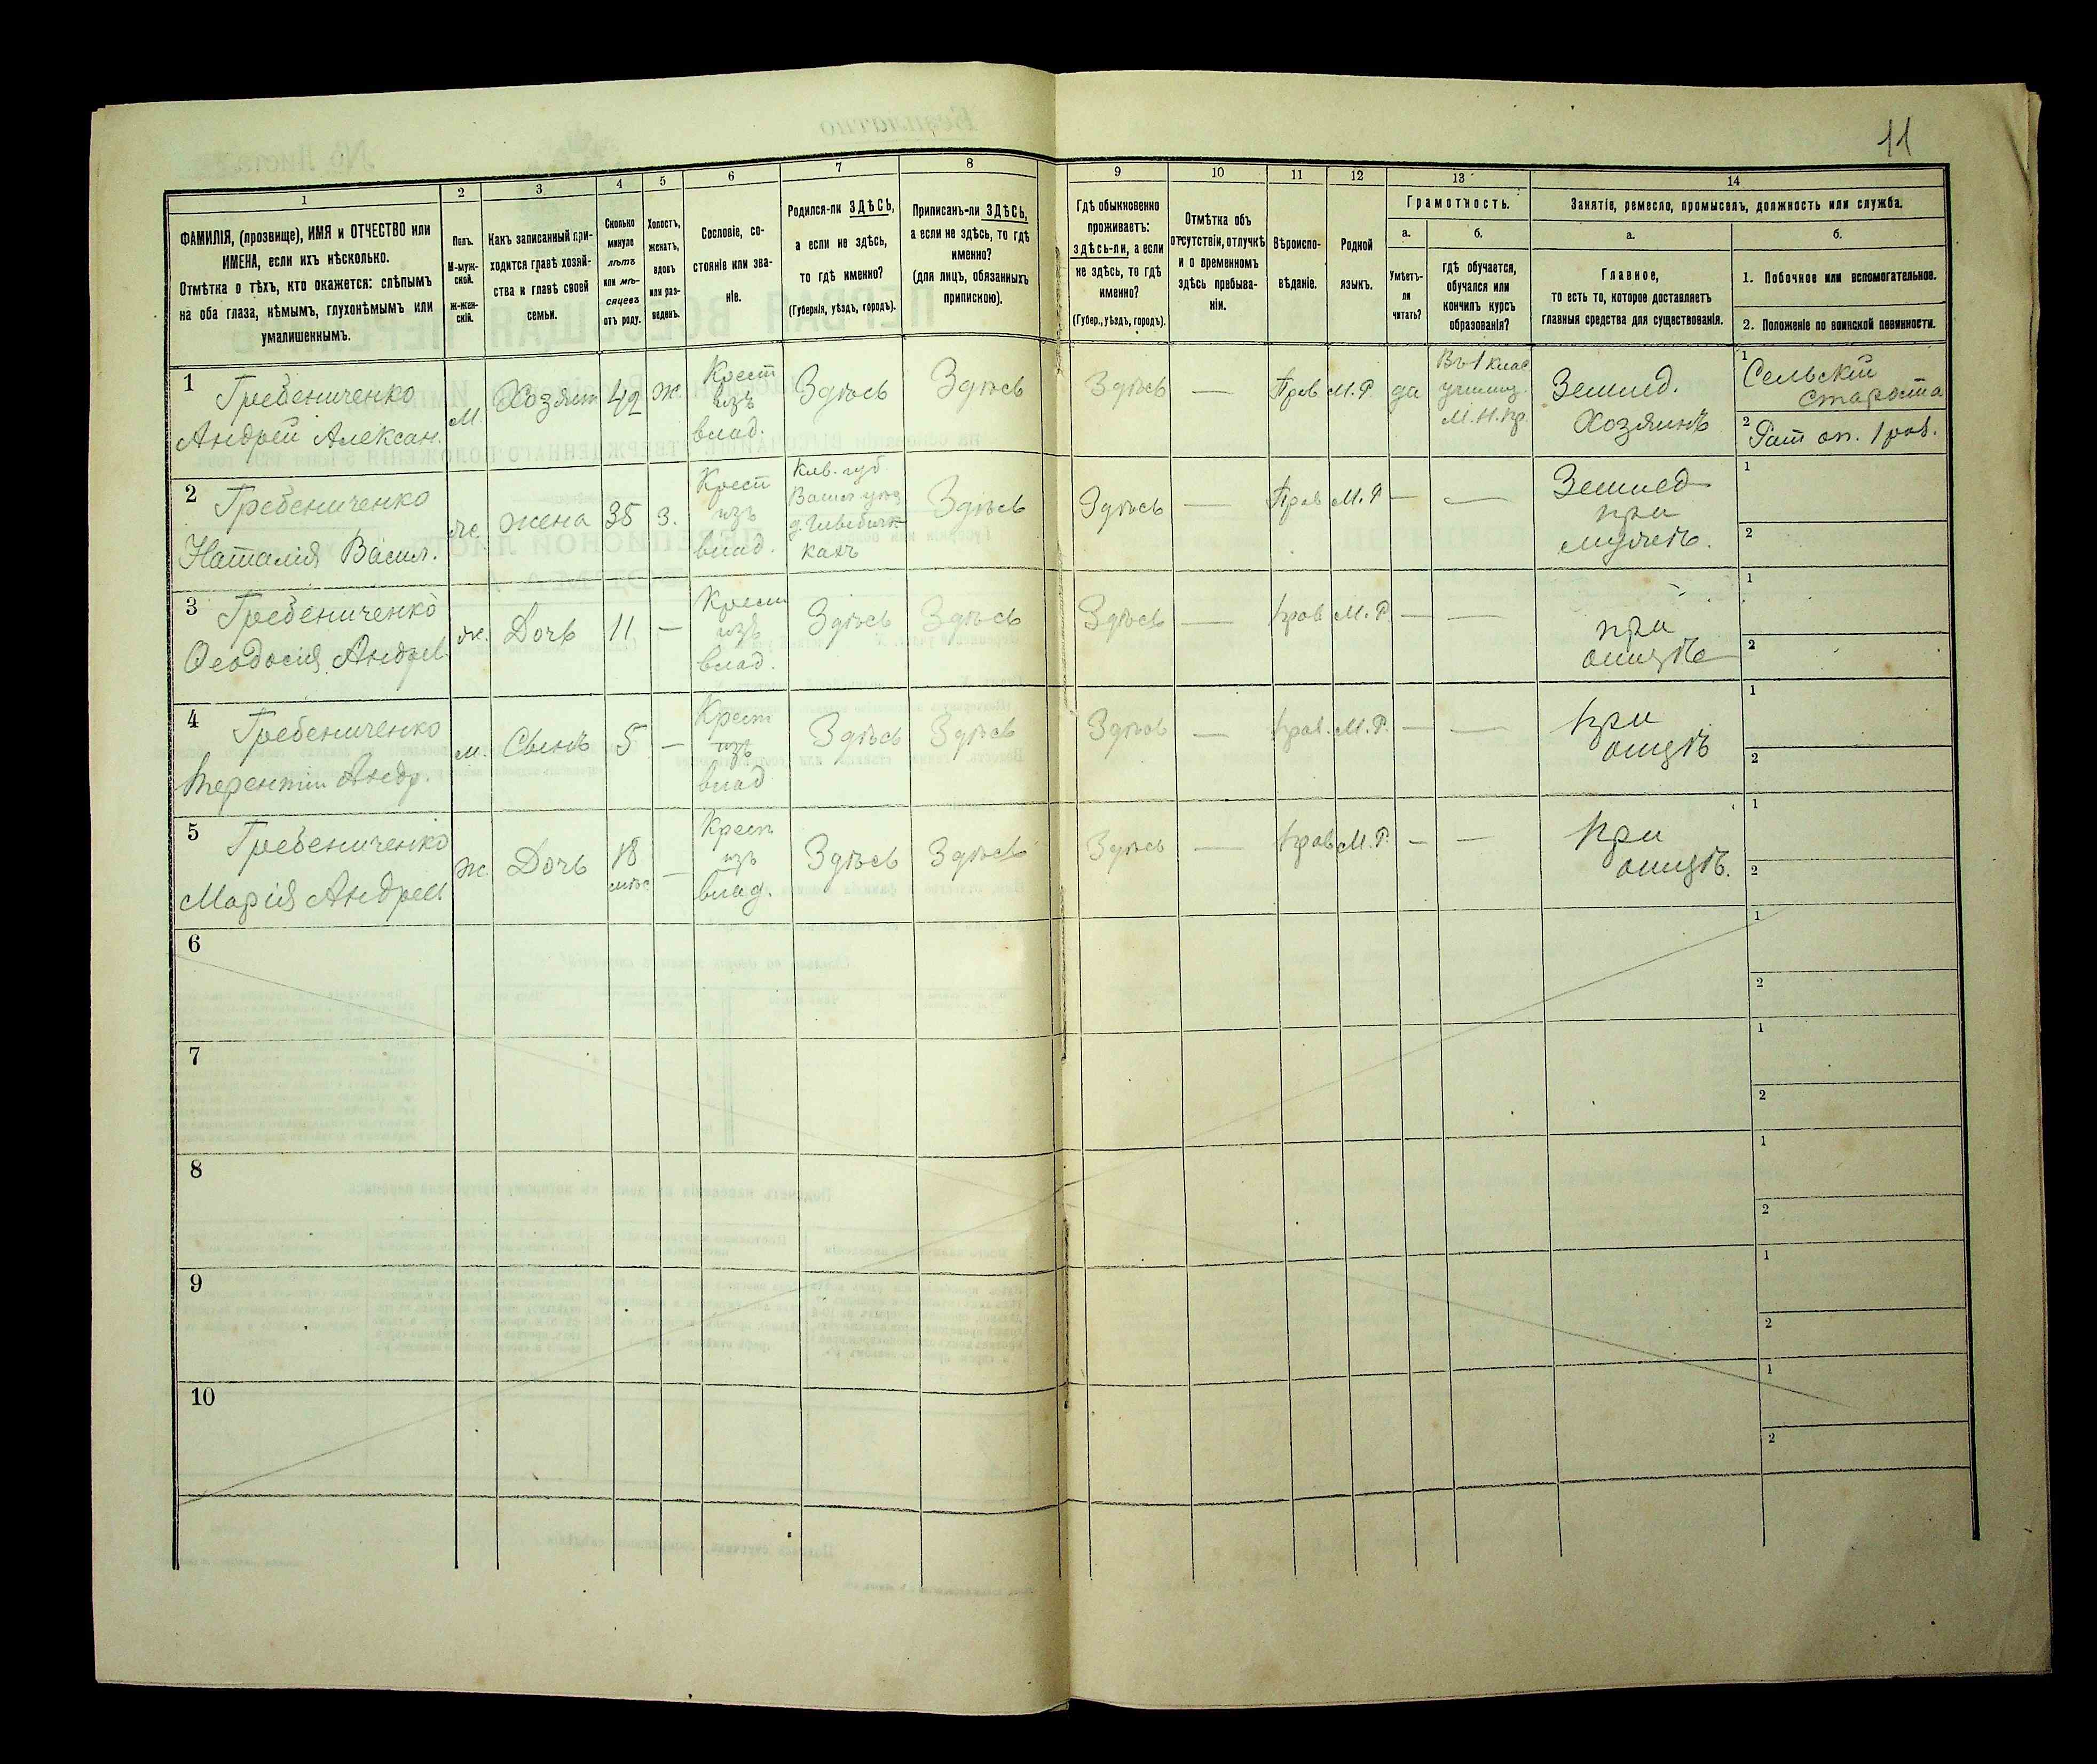 11
1
2
3
4
5
6
7
8
9
10
11
12
13
14
ФАМИЛІЯ, (прозвище), ИМЯ и ОТЧЕСТВО или
ИМЕНА, если ихъ нѣсколько.
Отмѣтка о тѣхъ, кто окажется: слѣпымъ
на оба глаза, нѣмымъ, глухонѣмымъ или
умалишеннымъ.
Полъ.
М-муж-
ской.
ж-жен-
скій.
Какъ записанный при-
ходится главѣ хозяй-
ства и главѣ своей
семьи.
Сколько
минуло
лѣтъ
или мѣ-
сяцевъ
отъ роду.
Холостъ,
женатъ,
вдовъ
или раз-
веденъ.
Сословіе, со-
стояніе или зва-
ніе.
Родился-ли ЗДѢСЬ,
а если не здѣсь,
то гдѣ именно?
(Губернія, уѣздъ, городъ).
Приписанъ-ли ЗДѢСЬ,
а если не здѣсь, то гдѣ
именно?
(для лицъ, обязанныхъ
припискою).
Гдѣ обыкновенно
проживаетъ:
здѣсь-ли, а если
не здѣсь, то гдѣ
именно?
(Губер., уѣздъ, городъ).
Отмѣтка объ
отсутствіи, отлучкѣ
и о временномъ
здѣсь пребыва-
ніи.
Вѣроиспо-
вѣданіе.
Родной
языкъ.
Грамотность.
а.
Умѣетъ-
ли
читать?
б.
гдѣ обучается,
обучался или
кончилъ курсъ
образованія?
Занятіе, ремесло, промыселъ, должность или служба.
а.
Главное,
то есть то, которое доставляетъ
главныя средства для существованія.
б.
1. Побочное или вспомогательное.
2. Положеніе по воинской повинности.
1 Гребениченко
Андрей Алексан.
М.
Хозяин
42
ж
Крест
изъ
влад.
Здѣсь
Здѣсь
Здѣсь
—
Прав
М.Р
да
Въ 1 клас
училищ.
М.Н.Пр.
Землед.
Хозяинъ
1 Сельскій
староста
2 Рат оп. 1 раз.
2 Гребениченко
Наталія Васил.
ж
жена
35
з.
Крест
изъ
влад.
Киев. губ
Васил уѣз
Здѣсь
Здѣсь
—
Прав
М.Р
—
—
Землед
при
мужѣ.
1
2
3 Гребениченко
Ѳеодосія Андрев.
ж.
Дочь
11
—
Крест
изъ
влад.
Здѣсь
Здѣсь
Здѣсь
—
прав
М.Р.
—
—
при
отцѣ
1
2
4 Гребениченко
Терентій Андр.
м.
Сынъ
5
—
Крест
изъ
влад
Здѣсь
Здѣсь
Здѣсь
—
прав.
М.Р.
—
—
при
отцѣ
1
2
5 Гребениченко
Марія Андреев.
Ж.
Дочь
18
мѣс
—
Крест
изъ
влад.
Здѣсь
Здѣсь
Здѣсь
—
прав
М.Р.
—
—
при
отцѣ.
1
2
6
1
2
7
1
2
8
1
2
9
1
2
10
1
2